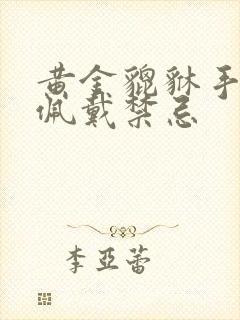 黄金貔貅手
佩戴禁忌
李亞蕾